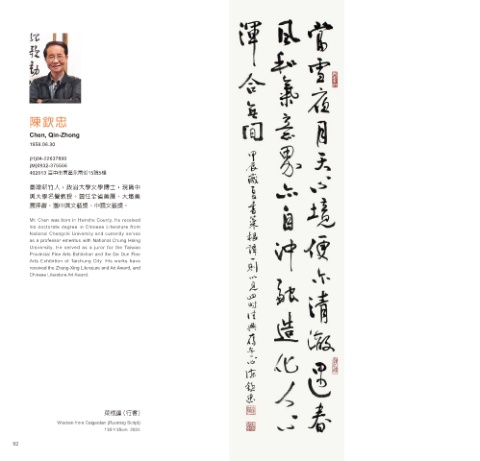 陳欽忠
Chen, Qin-Zhong
臺灣新竹人,政治大學文學博士,現為中
興大學名譽教授。曾任全省美展、大墩美
展評審。獲中興文藝獎、中國文藝獎。
Mr. Chen was born in Hsinchu County. He received
his doctorate degree in Chinese Literature from
National Chengchi University and currently serves
as a professor emeritus with National Chung Hsing
University. He served as a juror for the Taiwan
Province Fine Arts Exhibition and the Da Dun Fine
Arts Exhibition of Taichung City. His works have
received the Zhong-Xing Literature and Art Award, and
Chinese Literature Art Award.
當雪夜月天心境便尔清澈遇春
風和氣意界亦自沖融造化人心
渾合無間
甲辰歲 書菜根譚一則以見四時佳興存乎心 陳欽忠
菜根譚(行書)
92